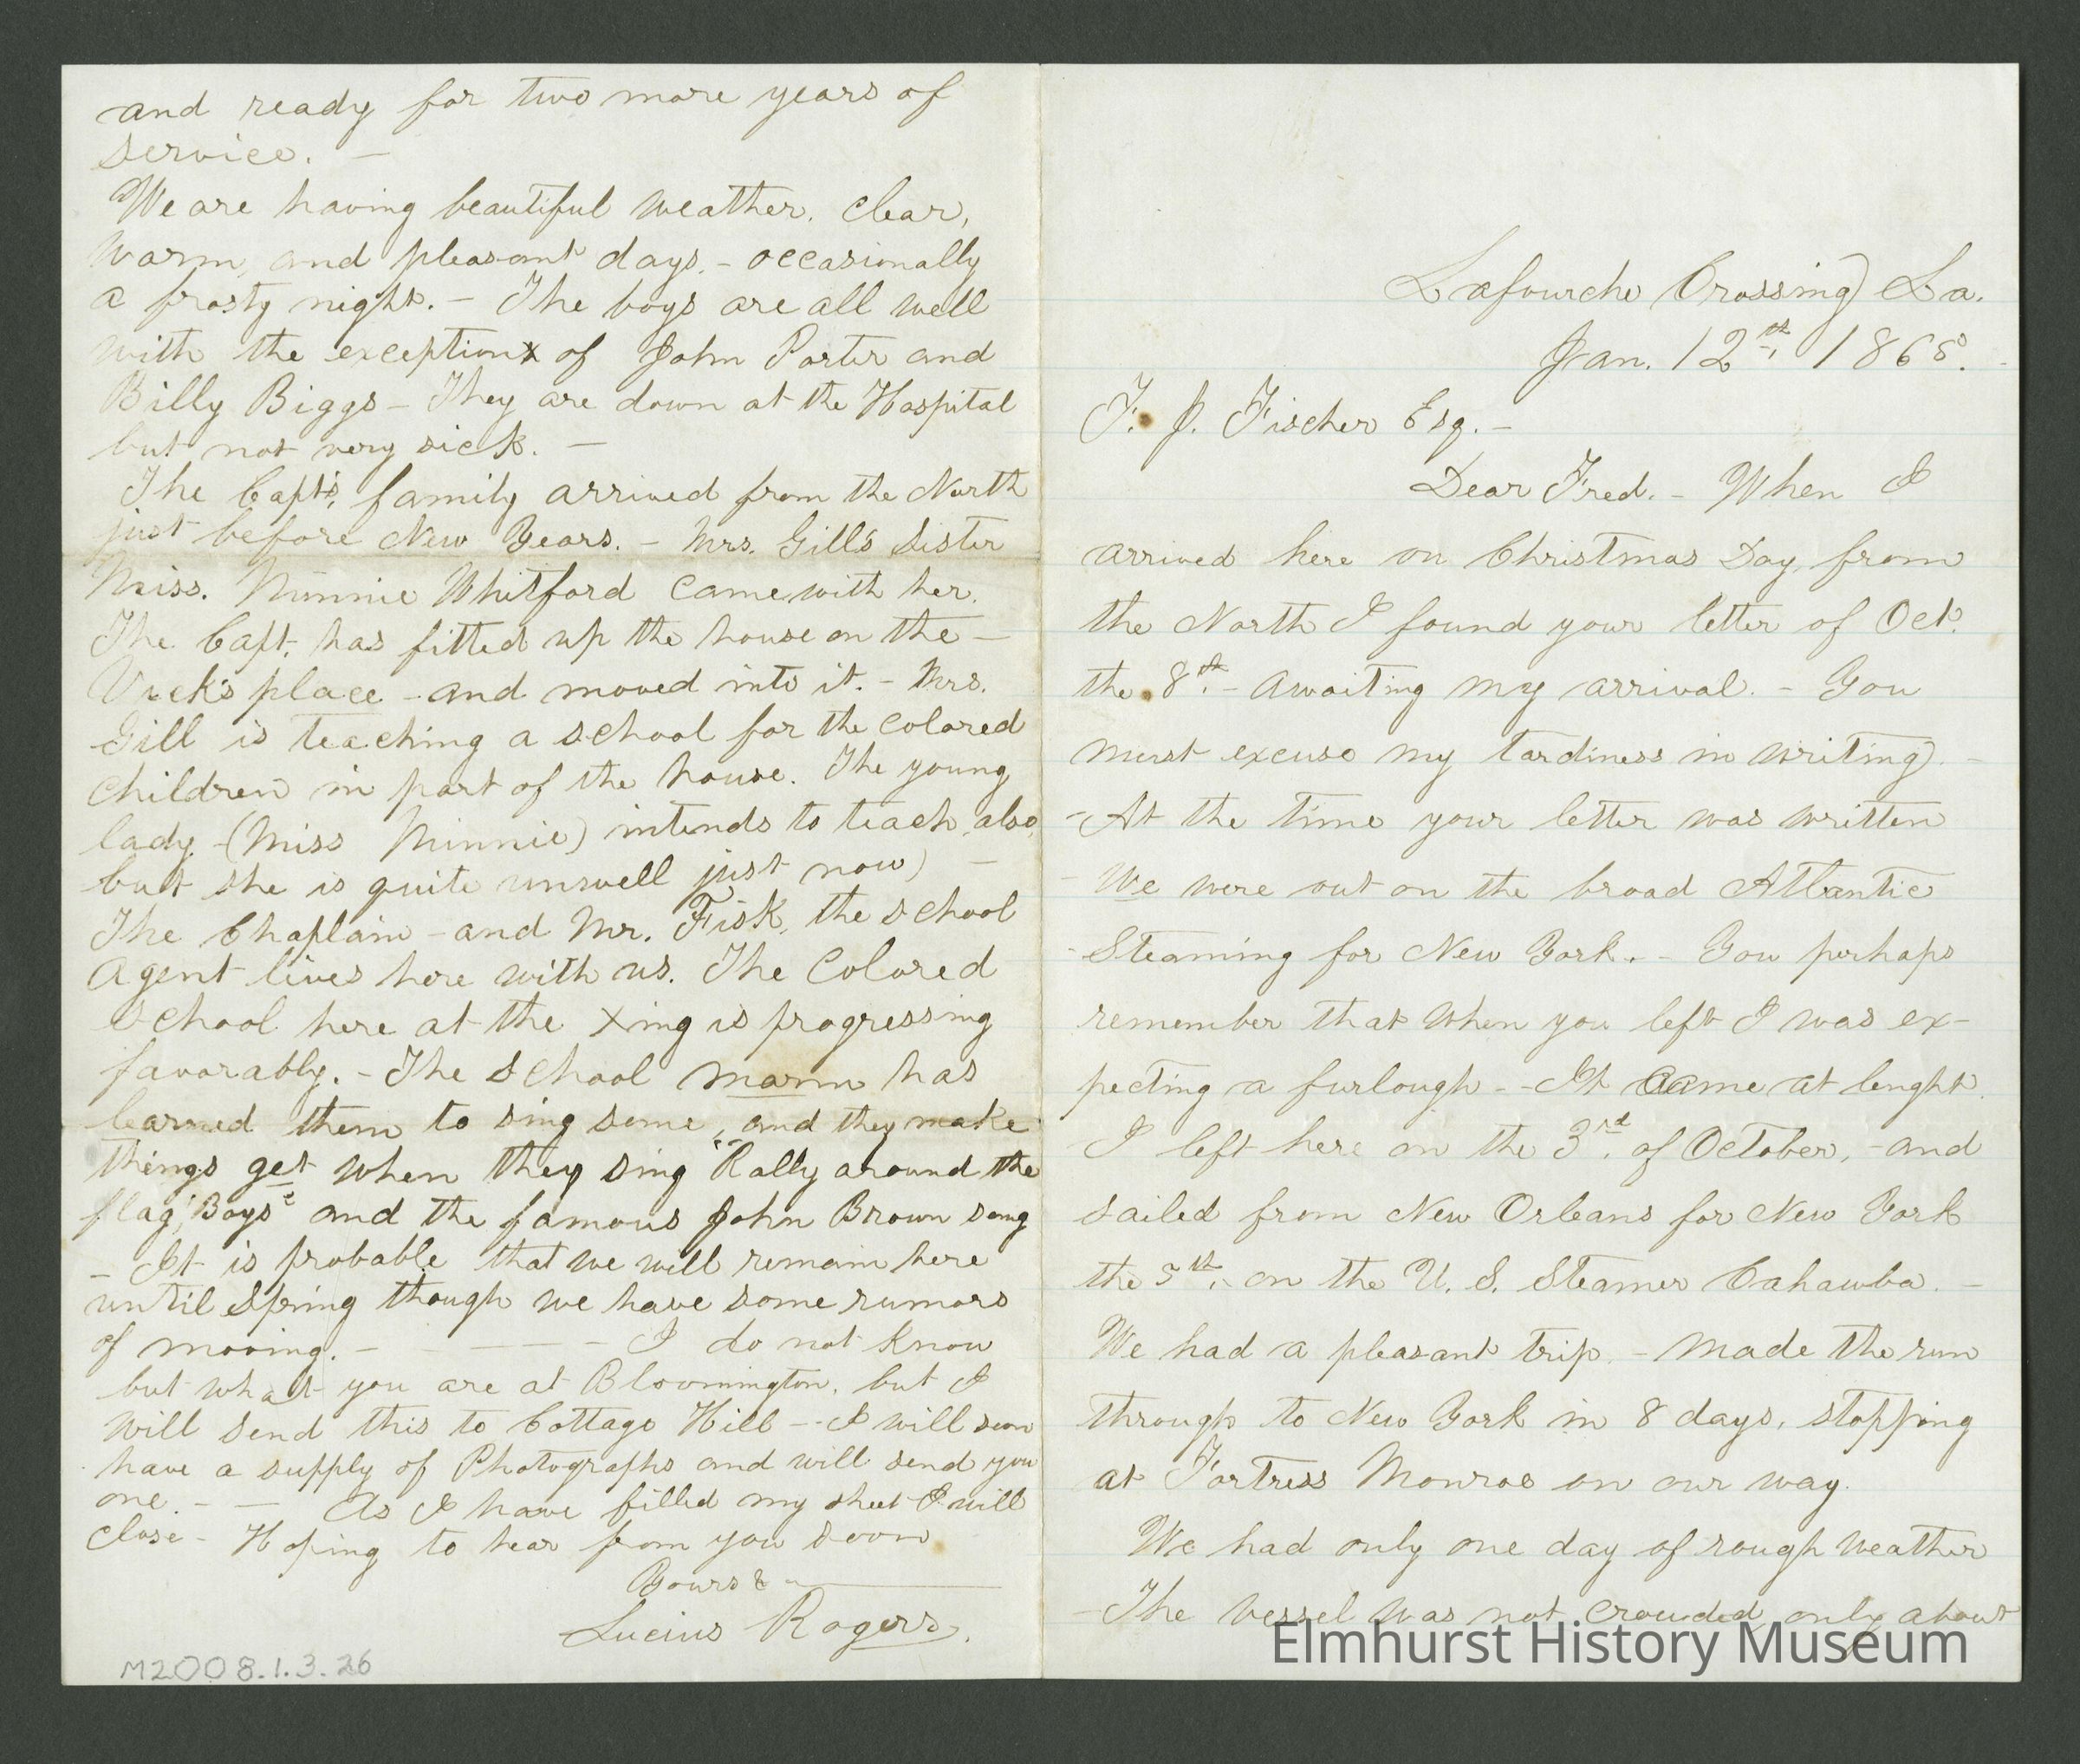 Lafourche Crossing, La.
Jan. 12th, 1865.
F. J. Fischer Esq. -
Dear Fred. - When I
arrived here on Christmas Day, from
the North I found your letter of Oct.
the 8th. - awaiting my arrival. - You
must excuse my tardiness in writing. -
- At the time your letter was written
- We were out on the broad Atlantic
- Steaming for New York. - You perhaps
remember that when you left I was ex-
pecting a furlough - - It came at lenght.
I left here on the 3rd. of October, - and
sailed from New Orleans for New York
the 5th. - on the U. S. Steamer Cahawba. -
We had a pleasant trip. - made the run
through to New York in 8 days, stopping
at Fortress Monroe on our way.
We had only one day of rough weather
- The vessel was not crowded, only about
and ready for two more years of
service. -
We are having beautiful weather, clear,
warm, and pleasant days, - occasionally
a frosty night. - The boys are all well
with the exception of John Porter and
Billy Biggs - They are down at the Hospital
but not very sick. -
The Capt's, family arrived from the North
just before New Years. - Mrs. Gill's Sister
Miss. Minnie Whitford came with her.
The Capt. has fitted up the house on the -
Vick's place - and moved into it. - Mrs.
Gill is teaching a school for the colored
children in part of the house. The young
lady - (Miss Minnie) intends to teach also,
but she is quite unwell just now) -
The Chaplain - and Mr. Fisk, the school
agent lives here with us. The Colored
school here at the Xing is progressing
favorably. - The School marm has
learned them to sing some, and they make
things get when they sing "Rally around the
flag, Boys" and the famous John Brown song
- It is probable that we will remain here
until Spring though we have some rumors
of moving. - - - - - I do not know
but what you are at Bloomington, but I
will send this to Cottage Hill - - I will soon
have a supply of Photographs and will send you
one. - - As I have filled my sheet I will
close - Hoping to hear from you soon
Yours &
Lucius Rogers.
M2008.1.3.26
Elmhurst History Museum